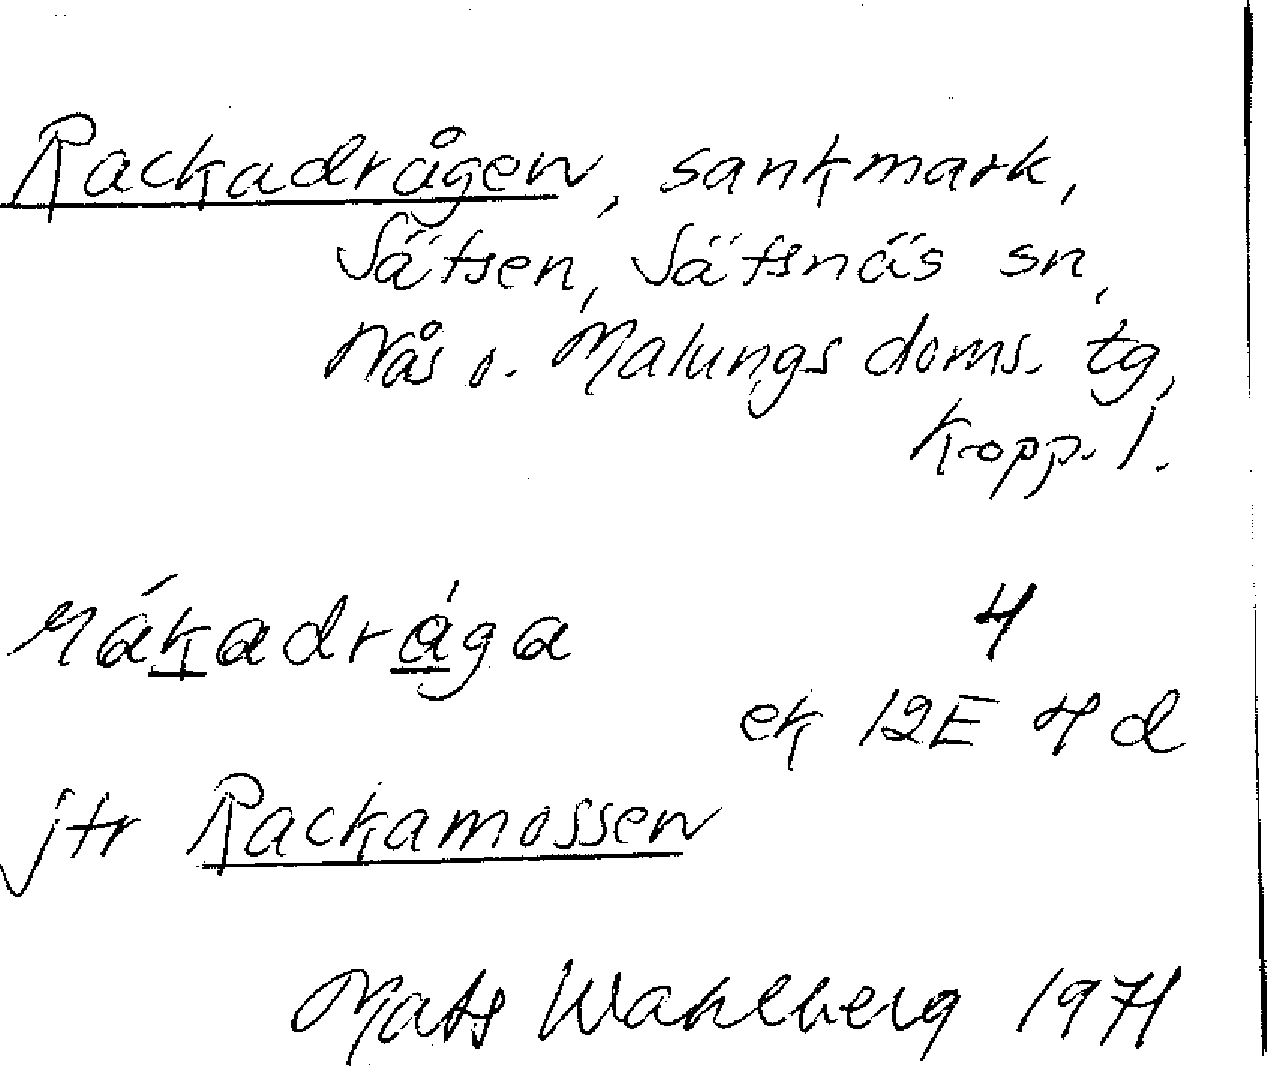 Rackadrågen, sankmark,
Sätsen, Sätsnäs sn,
Nås o. Malungs doms. tg,
Kopp. l.
rákadråga 4
ek 12E 4 d
jfr Rackamossen
Mats Wahlberg 1971